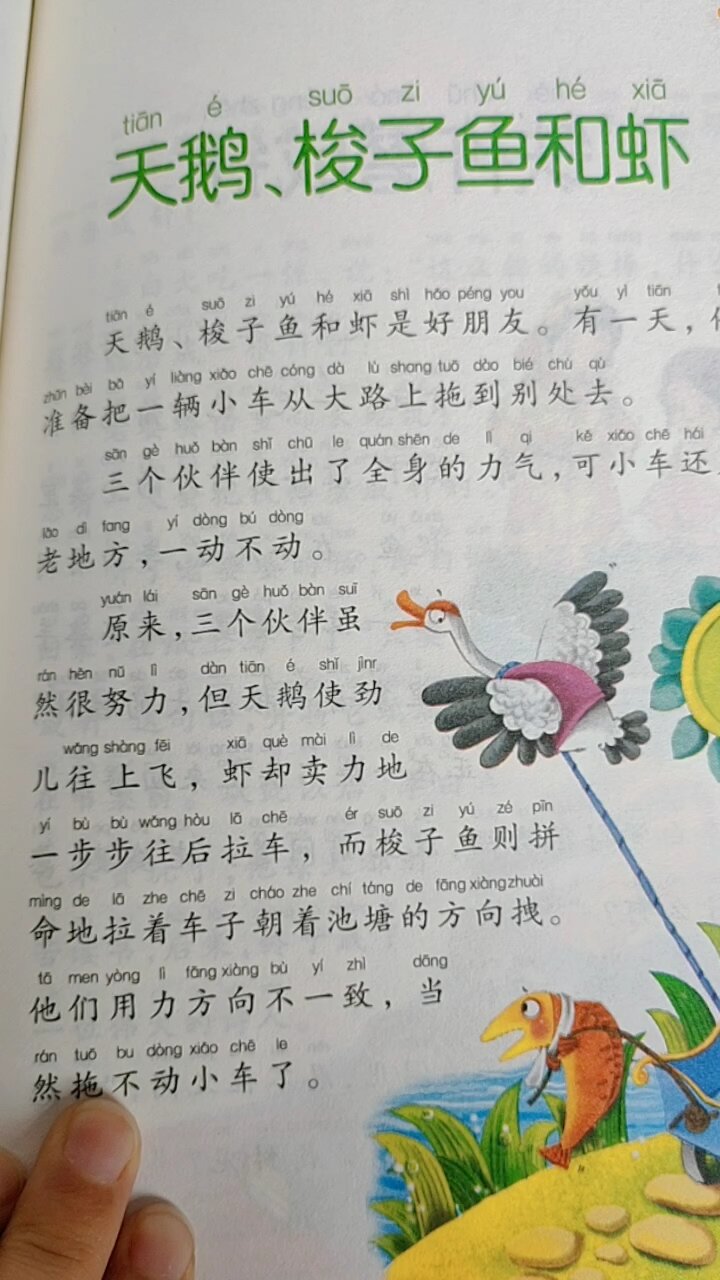 tiān é suō zi yú hé xiā
天鹅、梭子鱼和虾
tiān é suō zi yú hé xiā shì hǎo péng you yǒu yì tiān
天鹅、梭子鱼和虾是好朋友。有一天，
zhǔn bèi bǎ yí liàng xiǎo chē cóng dà lù shang tuō dào bié chù qù
准备把一辆小车从大路上拖到别处去。
sān gè huǒ bàn shǐ chū le quán shēn de lì qi kě xiǎo chē hái
三个伙伴使出了全身的力气，可小车还
lǎo dì fang yí dòng bú dòng
老地方，一动不动。
yuán lái sān gè huǒ bàn suī
原来，三个伙伴虽
rán hěn nǔ lì dàn tiān é shǐ jìnr
然很努力，但天鹅使劲
wǎng shàng fēi xiā què mài lì de
儿往上飞，虾却卖力地
yí bù bù wǎng hòu lā chē ér suō zi yú zé pīn
一步步往后拉车，而梭子鱼则拼
mìng de lā zhe chē zi cháo zhe chí táng de fāng xiàng zhuài
命地拉着车子朝着池塘的方向拽。
tā men yòng lì fāng xiàng bù yí zhì dāng
他们用力方向不一致，当
rán tuō bu dòng xiǎo chē le
然拖不动小车了。